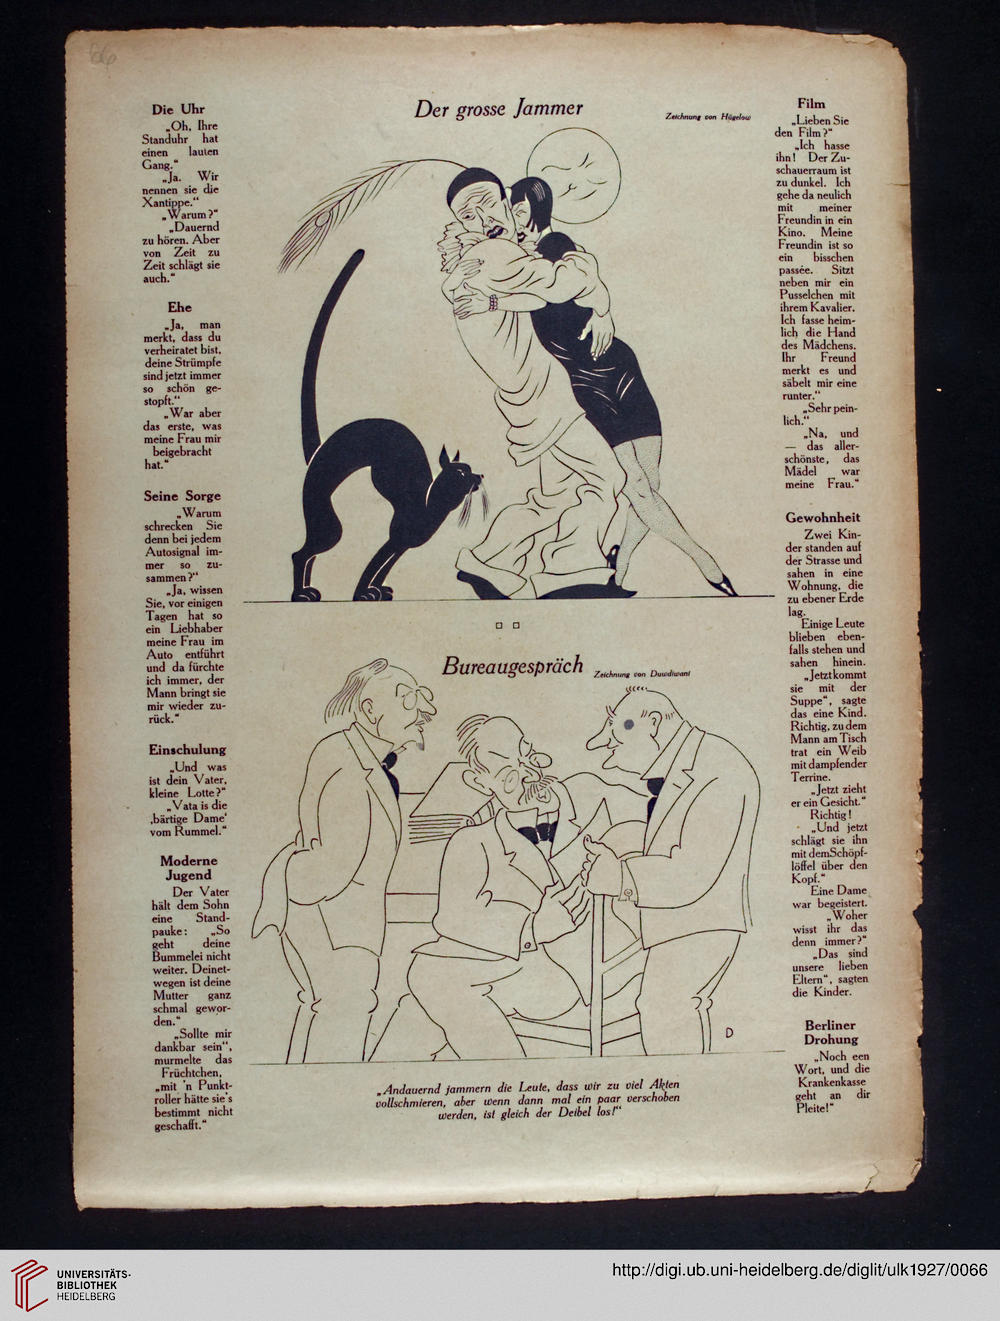 66
Die Uhr
„Oh, Ihre
Standuhr hat
einen lauten
Gang.“
„Ja. Wir
nennen sie die
Xantippe.“
„Warum?“
„Dauernd
zu hören. Aber
von Zeit zu
Zeit schlägt sie
auch.“
Ehe
„Ja, man
merkt, dass du
verheiratet bist,
deine Strümpfe
sind jetzt immer
so schön ge-
stopft.“
„War aber
das erste, was
meine Frau mir
beigebracht
hat.“
Seine Sorge
„Warum
schrecken Sie
denn bei jedem
Autosignal im-
mer so zu-
sammen?“
„Ja, wissen
Sie, vor einigen
Tagen hat so
ein Liebhaber
meine Frau im
Auto entführt
und da fürchte
ich immer, der
Mann bringt sie
mir wieder zu-
rück.“
Einschulung
„Und was
ist dein Vater,
kleine Lotte?“
„Vata is die
‚bärtige Dame‘
vom Rummel.“
Moderne
Jugend
Der Vater
hält dem Sohn
eine Stand-
pauke: „So
geht deine
Bummelei nicht
weiter. Deinet-
wegen ist deine
Mutter ganz
schmal gewor-
den.“
„Sollte mir
dankbar sein“,
murmelte das
Früchtchen,
„mit 'n Punkt-
roller hätte sie's
bestimmt nicht
geschafft.“
Der grosse Jammer
Zeichnung von Hügelow
Bureaugespräch
Zeichnung von Duwdiwani
D
„Andauernd jammern die Leute, dass wir zu viel Akten
vollschmieren, aber wenn dann mal ein paar verschoben
werden, ist gleich der Deibel los!“
Film
„Lieben Sie
den Film?“
„Ich hasse
ihn! Der Zu-
schauerraum ist
zu dunkel. Ich
gehe da neulich
mit meiner
Freundin in ein
Kino. Meine
Freundin ist so
ein bisschen
passée. Sitzt
neben mir ein
Pusselchen mit
ihrem Kavalier.
Ich fasse heim-
lich die Hand
des Mädchens.
Ihr Freund
merkt es und
säbelt mir eine
runter.“
„Sehr pein-
lich.“
„Na, und
— das aller-
schönste, das
Mädel war
meine Frau.“
Gewohnheit
Zwei Kin-
der standen auf
der Strasse und
sahen in eine
Wohnung, die
zu ebener Erde
lag.
Einige Leute
blieben eben-
falls stehen und
sahen hinein.
„Jetzt kommt
sie mit der
Suppe“, sagte
das eine Kind.
Richtig, zu dem
Mann am Tisch
trat ein Weib
mit dampfender
Terrine.
„Jetzt zieht
er ein Gesicht.“
Richtig!
„Und jetzt
schlägt sie ihn
mit dem Schöpf-
löffel über den
Kopf.“
Eine Dame
war begeistert.
„Woher
wisst ihr das
denn immer?“
„Das sind
unsere lieben
Eltern“, sagten
die Kinder.
Berliner
Drohung
„Noch een
Wort, und die
Krankenkasse
geht an dir
Pleite!“
UNIVERSITÄTS-
BIBLIOTHEK
HEIDELBERG
http://digi.ub.uni-heidelberg.de/diglit/ulk1927/0066